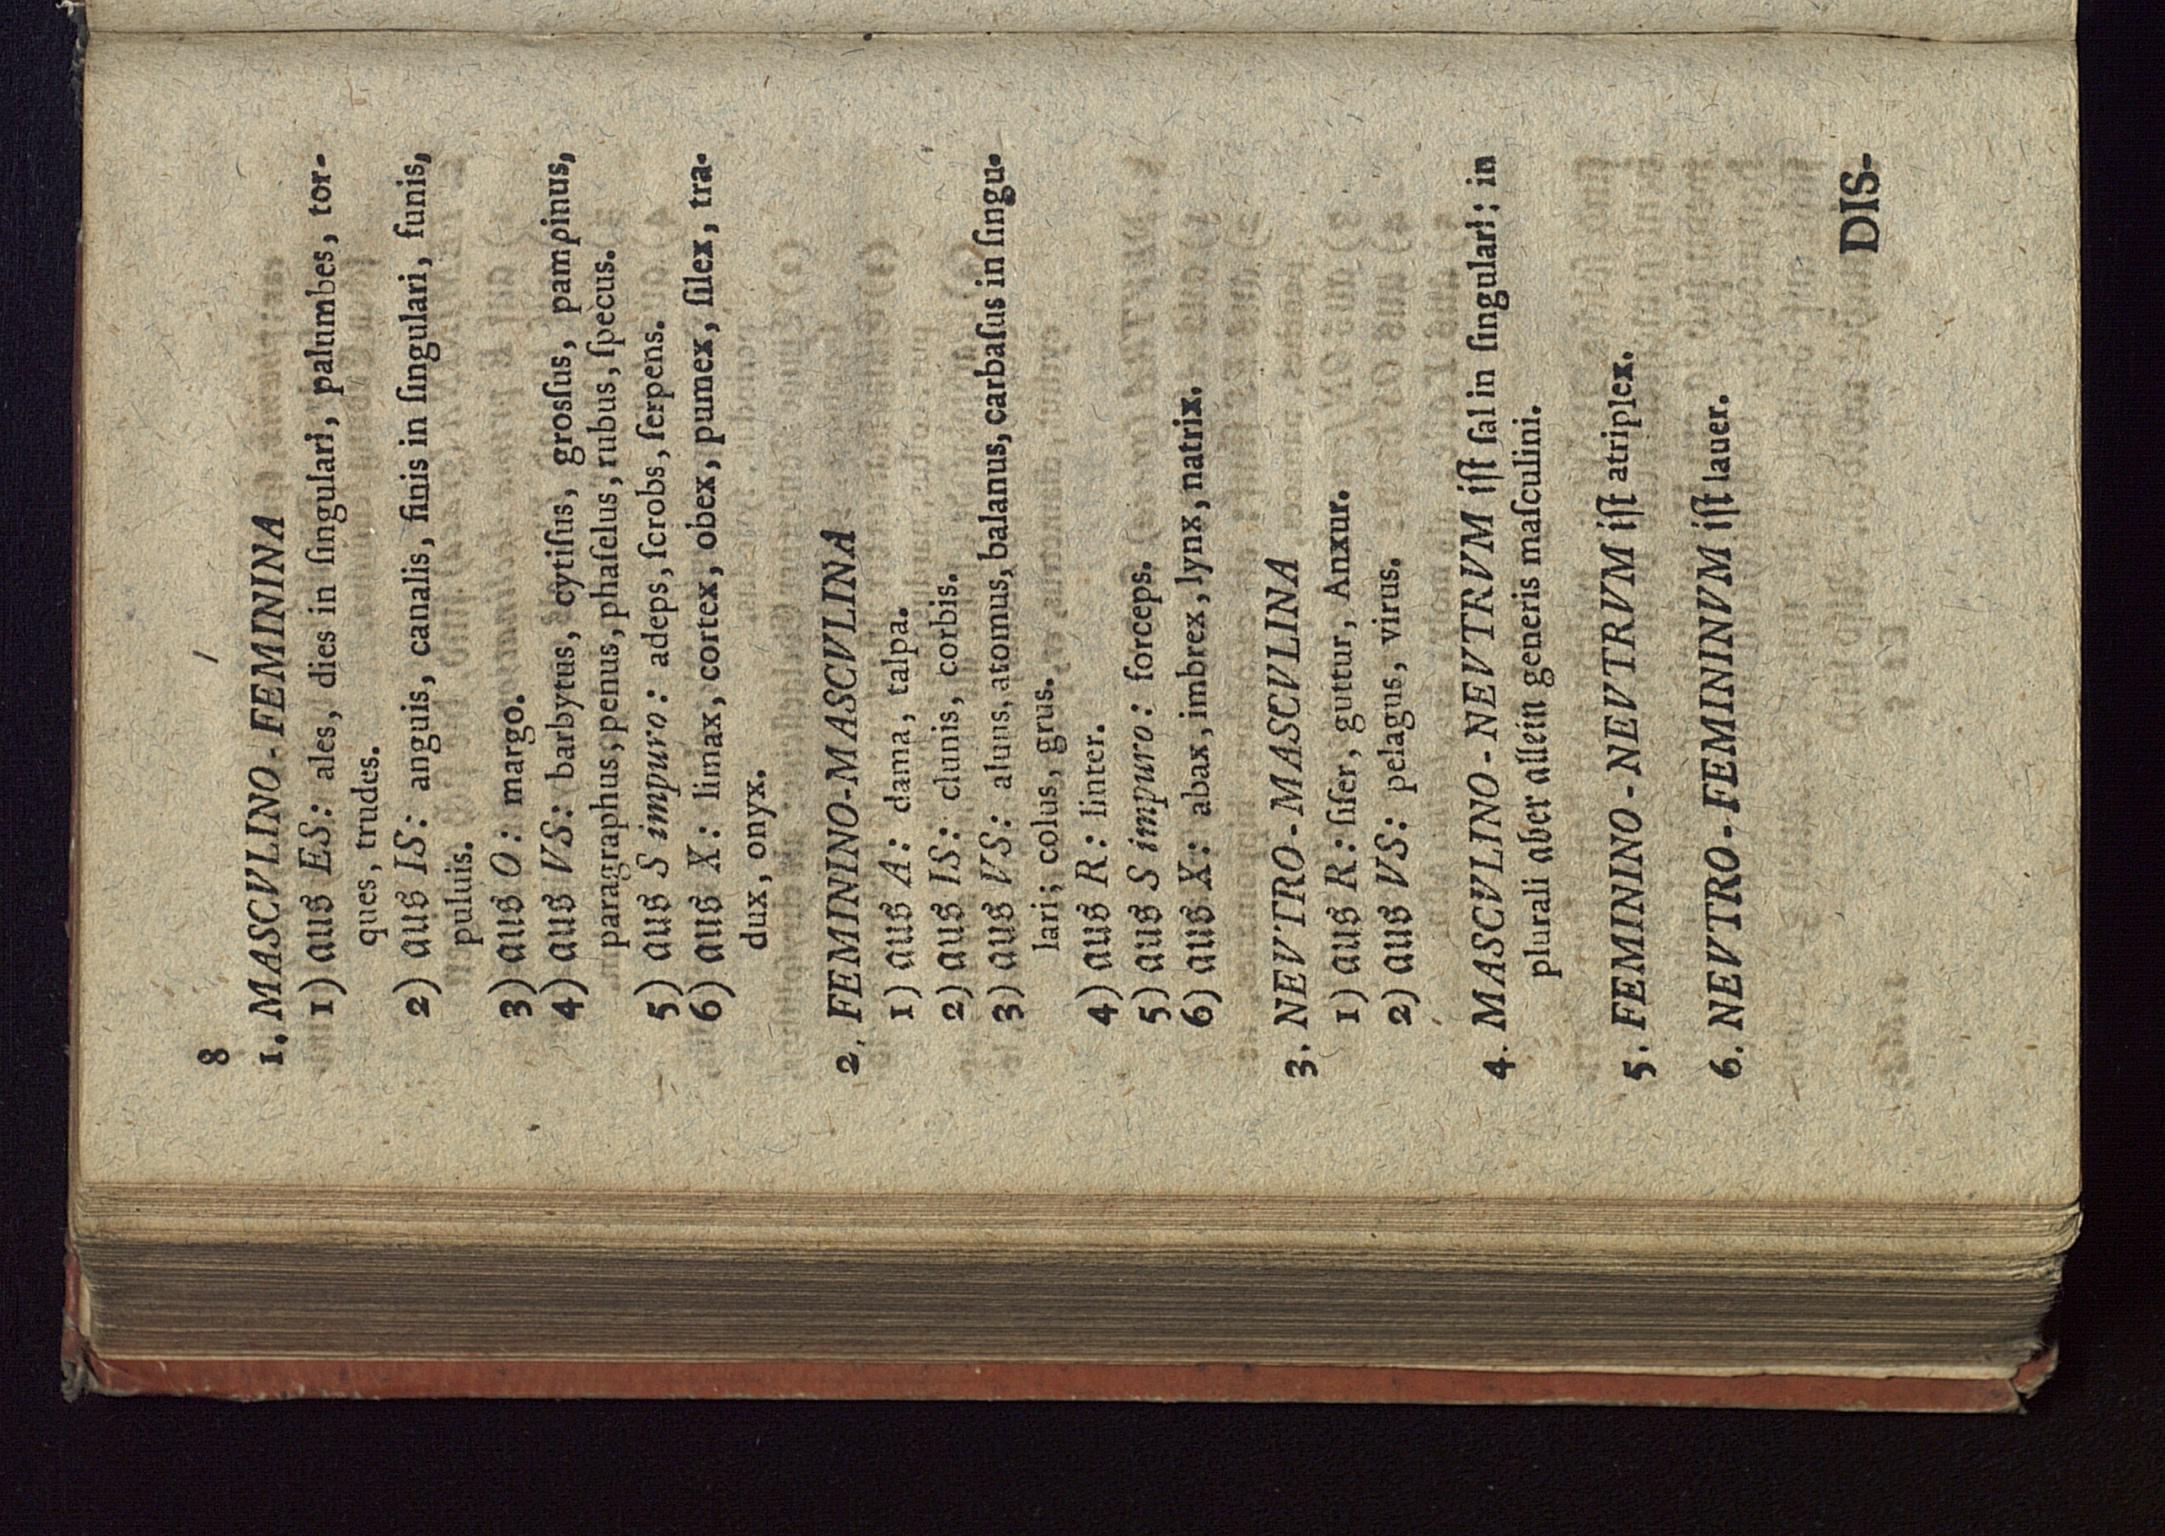 8
1. MASCVLINO-FEMININA
1) aus ES: ales, dies in ſingulari, palumbes, tor-
ques, trudes.
2) aus IS: anguis, canalis, finis in ſingulari, funis,
puluis.
3) aus O: margo.
4) aus VS: barbytus, cytiſus, grosſus, pampinus,
paragraphus, penus, phaſelus, rubus, ſpecus.
5) aus S impuro: adeps, ſcrobs, ſerpens.
6) aus X: limax, cortex, obex, pumex, ſilex, tra-
dux, onyx.
2. FEMININO-MASCVLINA
1) aus A: dama, talpa.
2) aus IS: clunis, corbis.
3) aus VS: aluus, atomus, balanus, carbaſus in ſingu-
lari; colus, grus.
4) aus R: linter.
5) aus S impuro: forceps.
6) aus X: abax, imbrex, lynx, natrix.
3. NEVTRO-MASCVLINA
1) aus R: ſiſer, guttur, Anxur.
2) aus VS: pelagus, virus.
4. MASCVLINO-NEVTRVM iſt ſal in ſingulari; in
plurali aber allein generis maſculini.
5. FEMININO-NEVTRVM iſt atriplex.
6. NEVTRO-FEMININVM iſt lauer.
DIS-